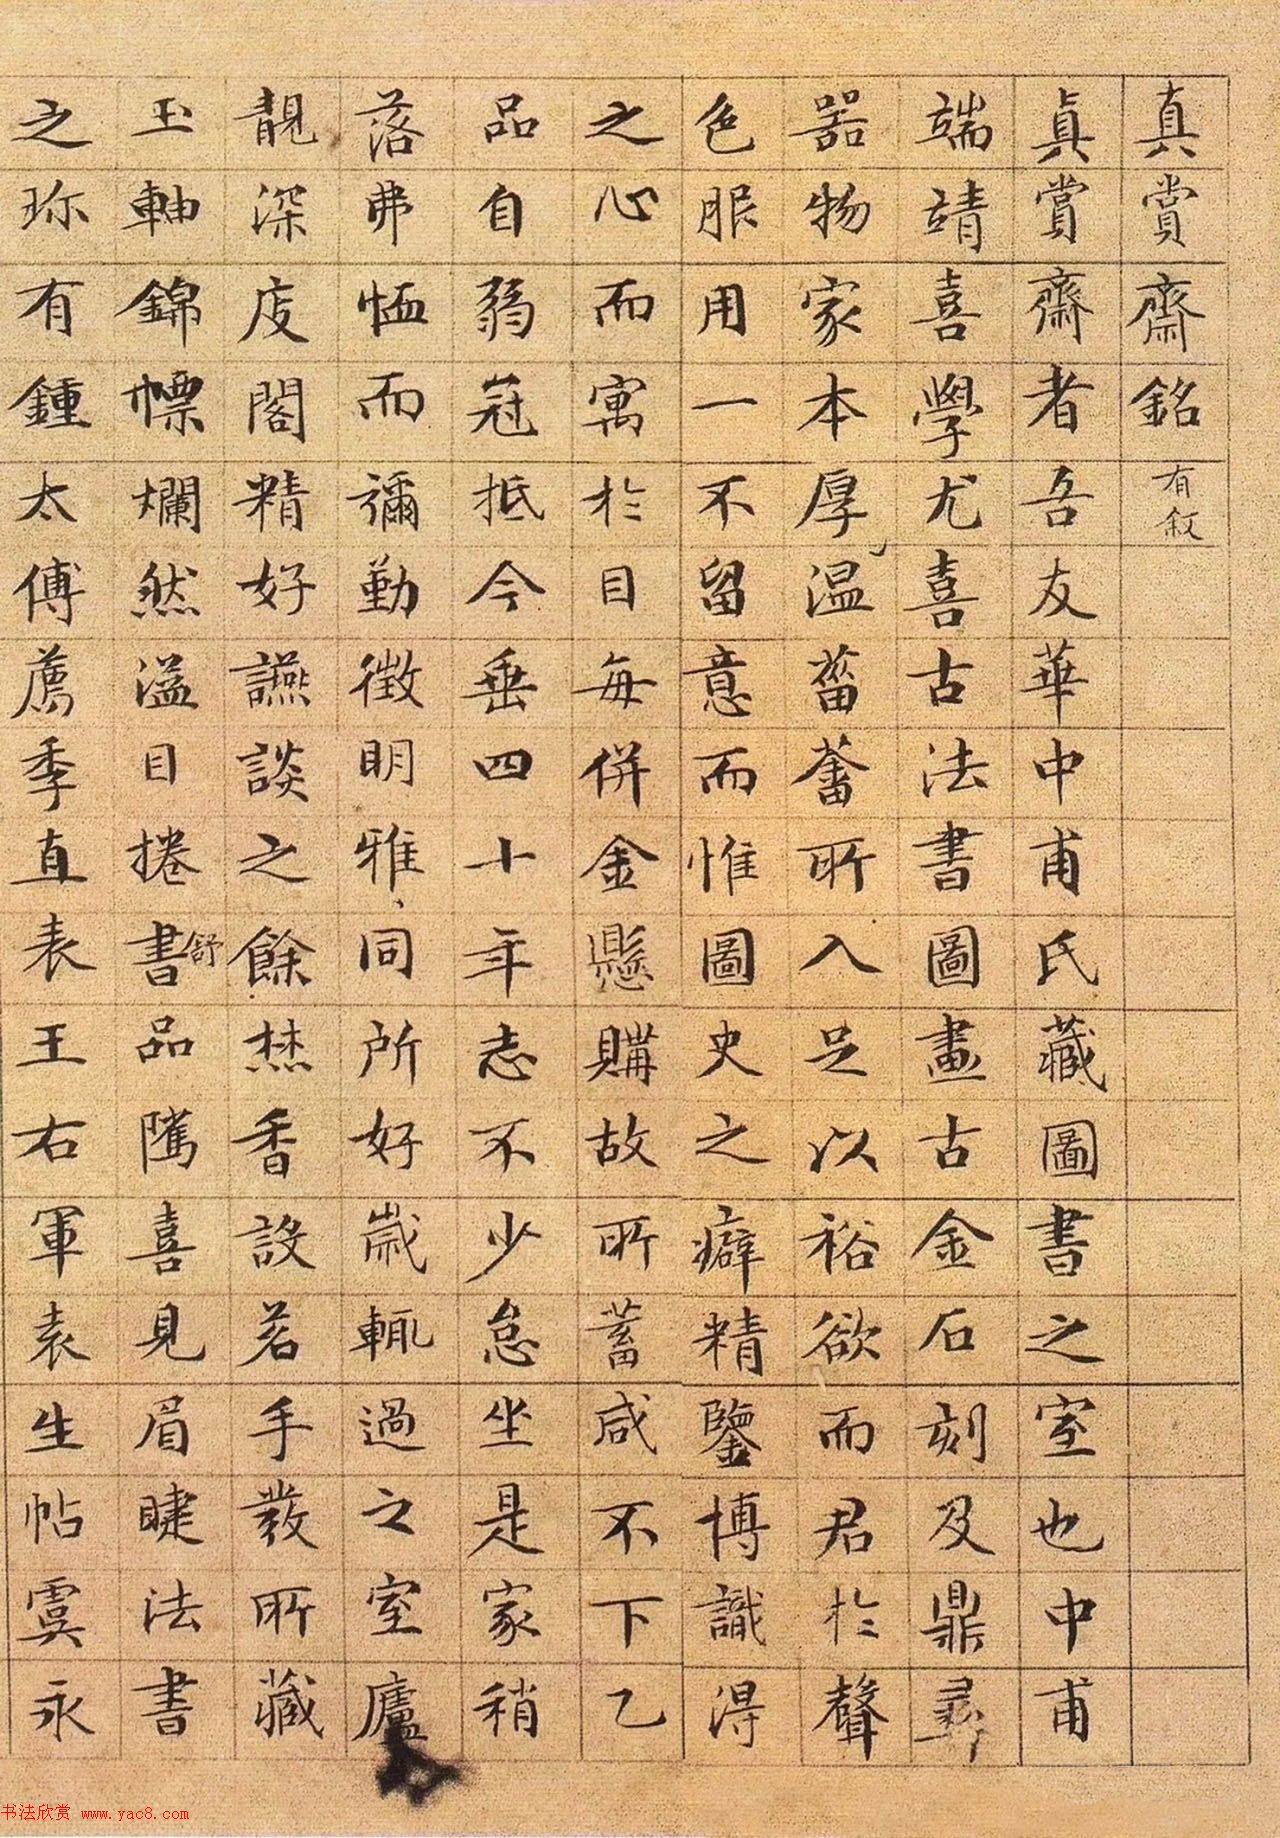 真賞齋銘 有敘
真賞齋者吾友華中甫氏藏圖書之室也中甫
端靖喜學尤喜古法書圖畫古金石刻及鼎彝
器物家本厚溫菑畬所入足以裕欲而君於聲
色服用一不留意而惟圖史之癖精鑒博識得
之心而寓於目每併金懸購故所蓄咸不下乙
品自弱冠抵今垂四十年志不少怠坐是家稍
落弗恤而彌勤徵明雅同所好歲輒過之室廬
靚深庋閣精好讌談之餘焚香設茗手發所藏
玉軸錦幖爛然溢目捲舒書品隲喜見眉睫法書
之珍有鍾太傅薦季直表王右軍袁生帖虞永
书法欣赏 www.yac8.com